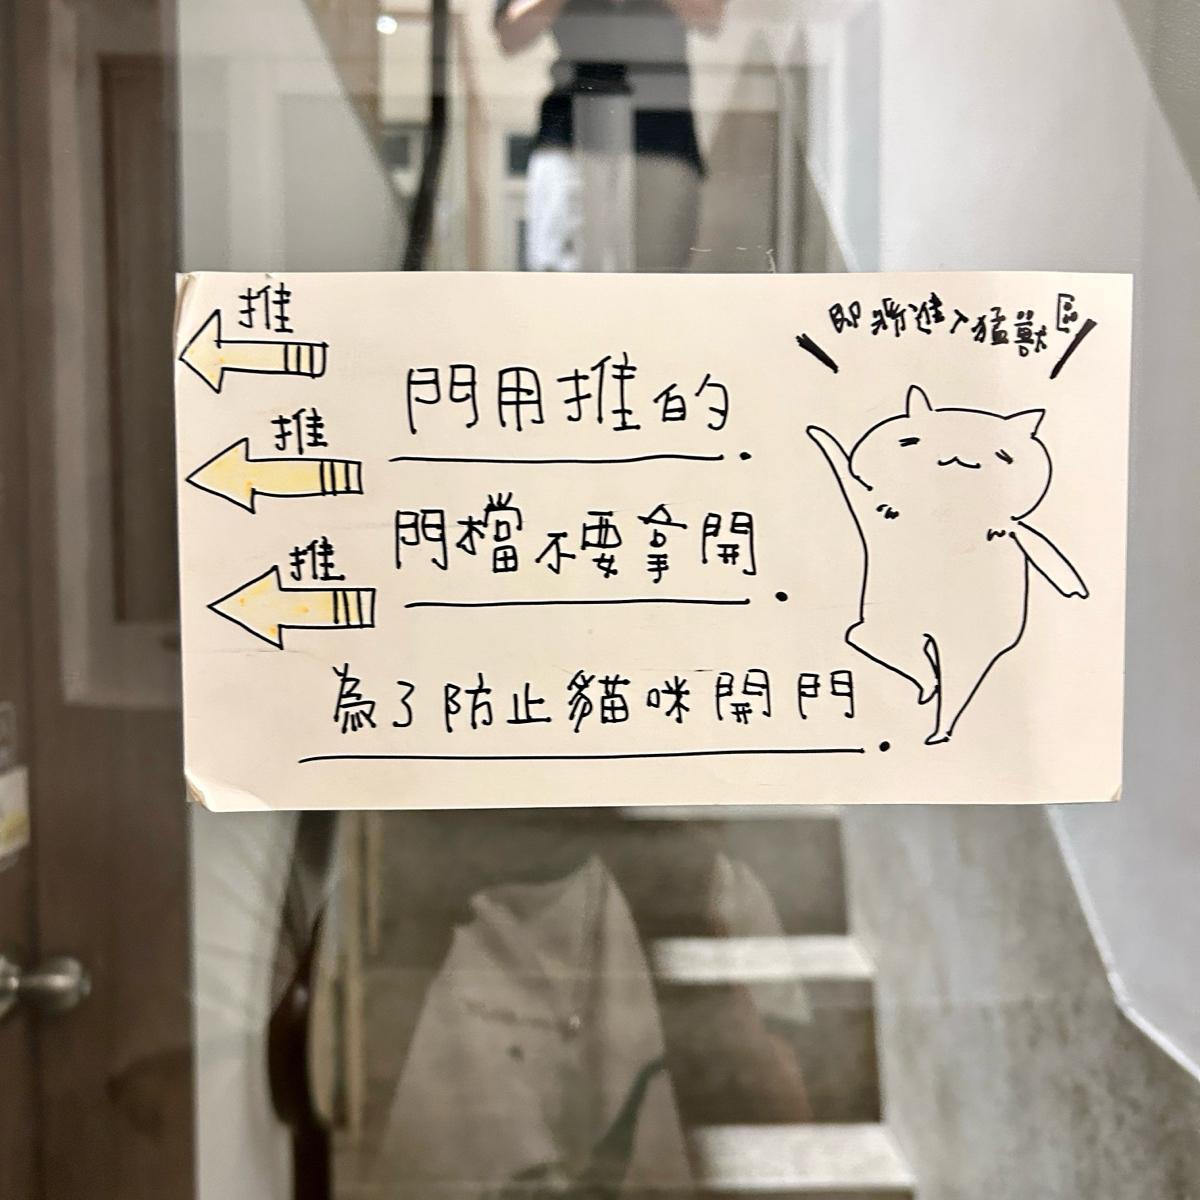 推
推
推
門用推的.
門檔不要拿開.
為了防止貓咪開門.
即將進入猛獸區